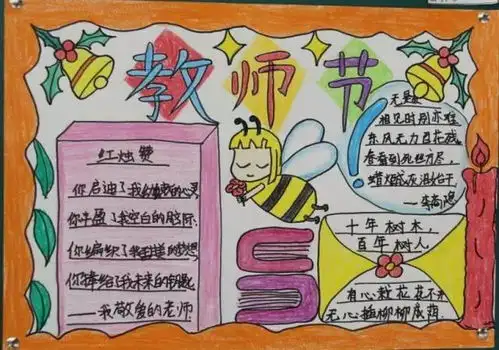 教师节
红烛赞
你启迪了我幼稚的心灵
你丰盈了我空白的脑际
你编织了我五彩的梦想
你捧给了我未来的
——我敬爱的老师
无题
相见时别亦难
东风无力百花残
春蚕到死丝方尽,
蜡炬成灰泪始干
——李商隐
十年树木,
百年树人
有心栽花花不
无心插柳柳成荫